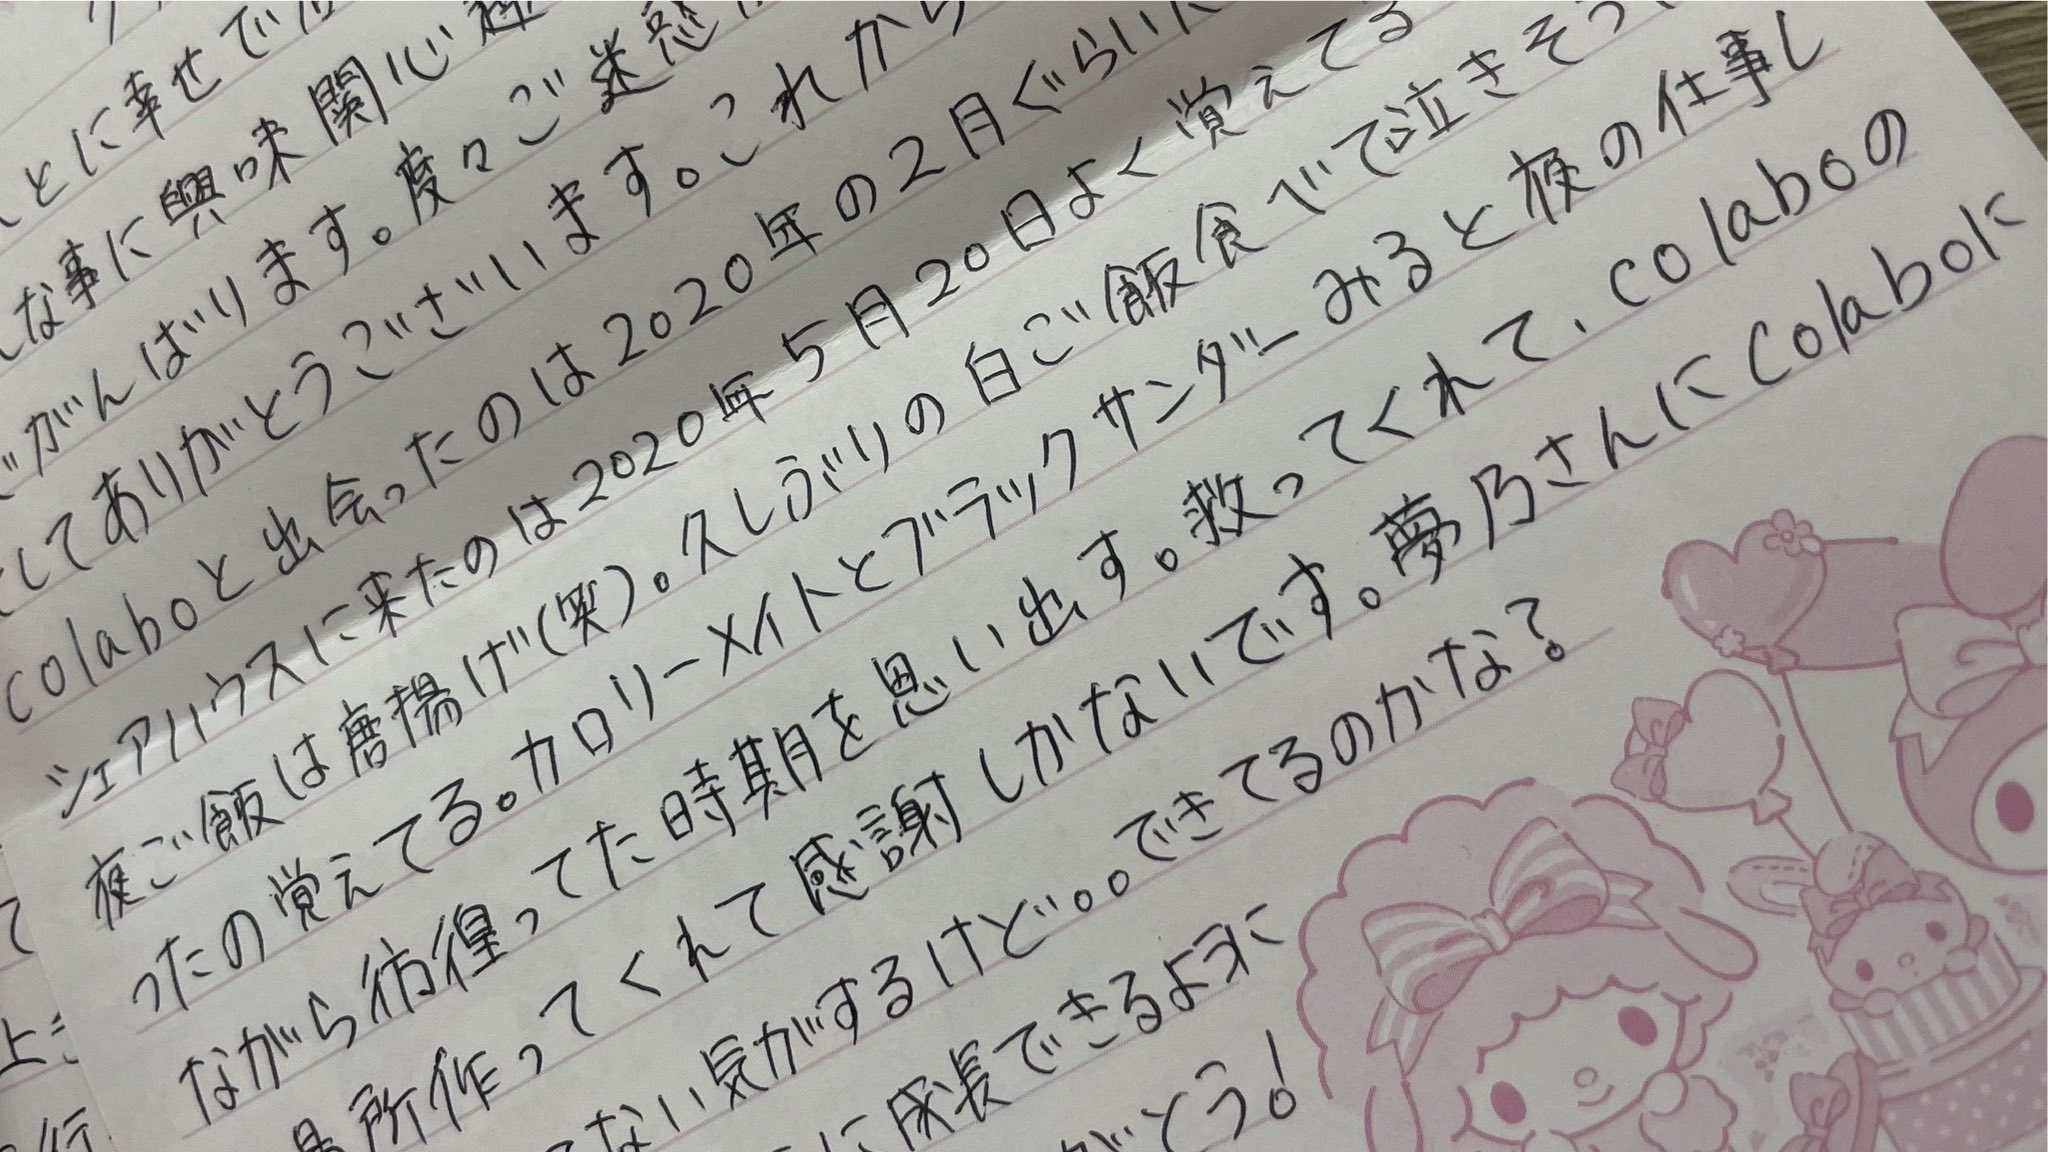 とに幸せで
な事に興味関心
がんばります。度々ご迷惑
してありがとうございます。これから
colaboと出会ったのは2020年の2月ぐらいに
シェアハウスに来たのは2020年5月20日よく覚えてる
夜ご飯は唐揚げ(笑)。久しぶりの白ご飯食べて泣きそう
ったの覚えてる。カロリーメイトとブラックサンダーみると夜の仕事し
ながら彷徨ってた時期を思い出す。救ってくれて、colaboの
場所作ってくれて感謝しかないです。夢乃さんにcolaboに
てない気がするけど。。できてるのかな?
に成長できるように
がとう!
上
行